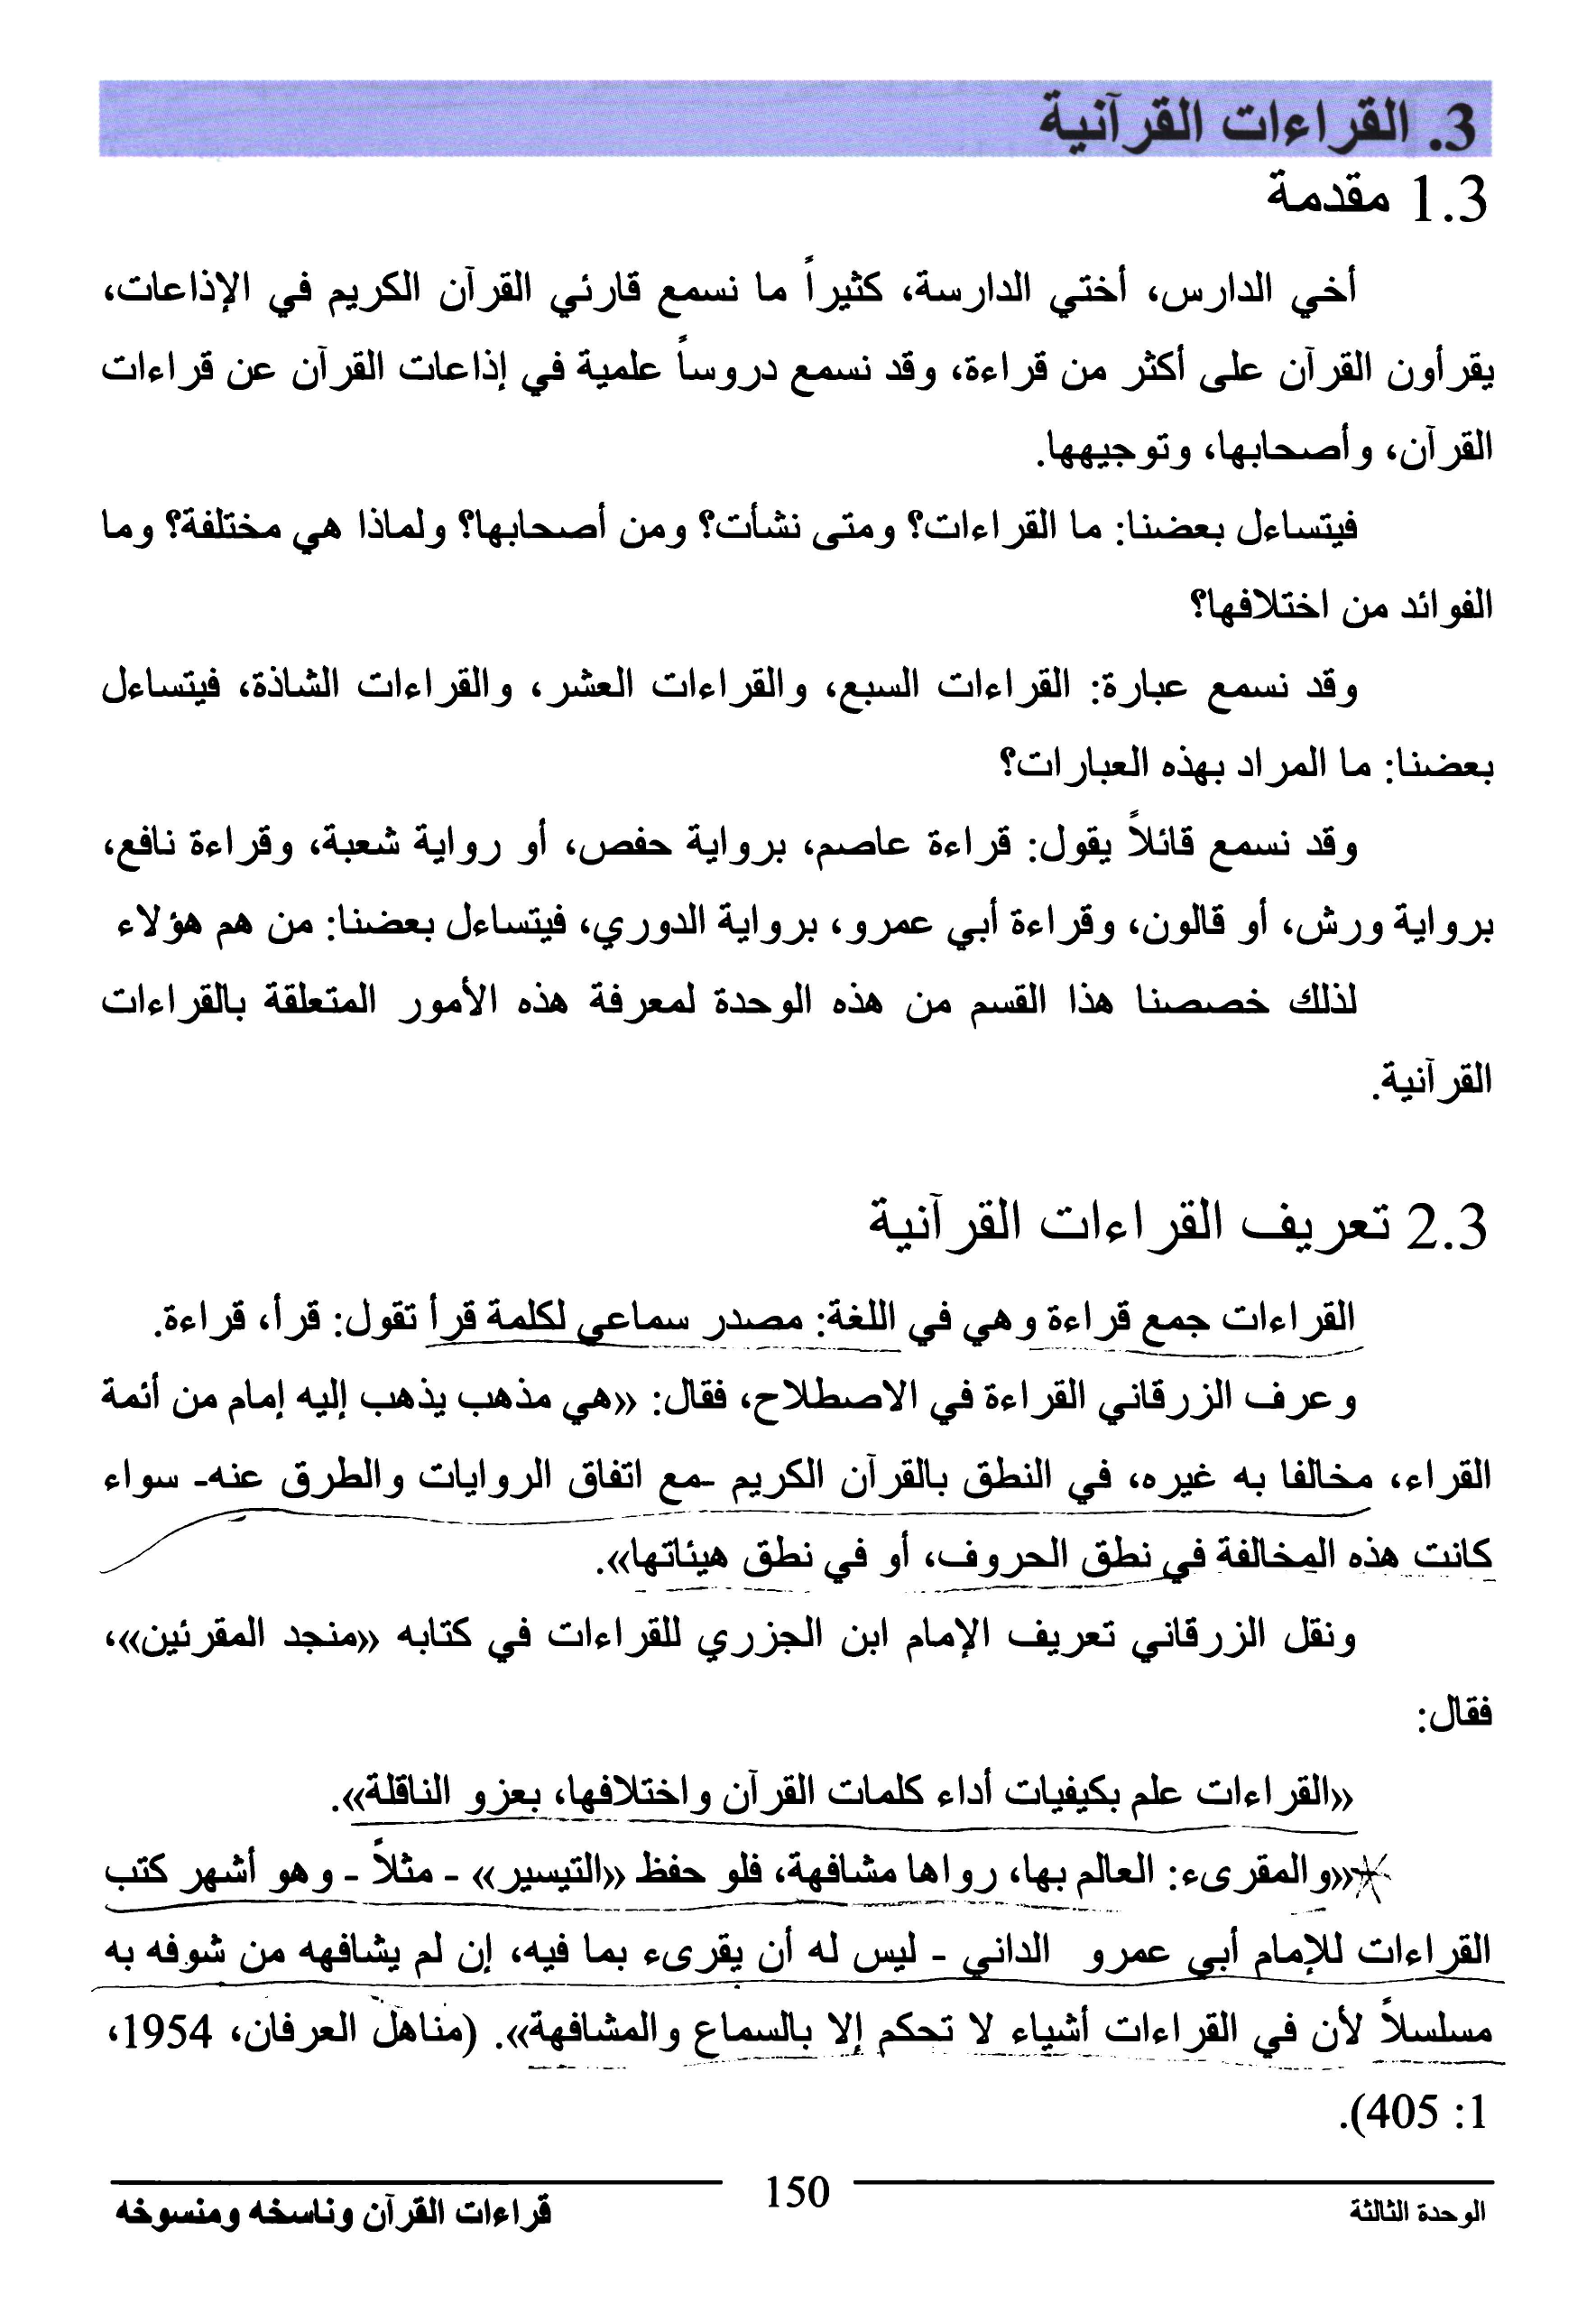 3. القراءات القرآنية
1.3 مقدمة
أخي الدارس، أختي الدارسة، كثيراً ما نسمع قارئي القرآن الكريم في الإذاعات،
يقرأون القرآن على أكثر من قراءة، وقد نسمع دروساً علمية في إذاعات القرآن عن قراءات
القرآن، وأصحابها، وتوجيهها.
فيتساءل بعضنا: ما القراءات؟ ومتى نشأت؟ ومن أصحابها؟ ولماذا هي مختلفة؟ وما
الفوائد من اختلافها؟
وقد نسمع عبارة: القراءات السبع، والقراءات العشر، والقراءات الشاذة، فيتساءل
بعضنا: ما المراد بهذه العبارات؟
وقد نسمع قائلاً يقول: قراءة عاصم، برواية حفص، أو رواية شعبة، وقراءة نافع،
برواية ورش، أو قالون، وقراءة أبي عمرو، برواية الدوري، فيتساءل بعضنا: من هم هؤلاء
لذلك خصصنا هذا القسم من هذه الوحدة لمعرفة هذه الأمور المتعلقة بالقراءات
القرآنية.
2.3 تعريف القراءات القرآنية
القراءات جمع قراءة وهي في اللغة: مصدر سماعي لكلمة قرأ تقول: قرأ، قراءة.
وعرف الزرقاني القراءة في الاصطلاح، فقال: «هي مذهب يذهب إليه إمام من أئمة
القراء، مخالفا به غيره، في النطق بالقرآن الكريم -مع اتفاق الروايات والطرق عنه- سواء
كانت هذه المخالفة في نطق الحروف، أو في نطق هيئاتها».
ونقل الزرقاني تعريف الإمام ابن الجزري للقراءات في كتابه «منجد المقرئين»،
فقال:
«القراءات علم بكيفيات أداء كلمات القرآن واختلافها، بعزو الناقلة».
«والمقرىء: العالم بها، رواها مشافهة، فلو حفظ «التيسير» - مثلاً - وهو أشهر كتب
القراءات للإمام أبي عمرو الداني - ليس له أن يقرىء بما فيه، إن لم يشافهه من شوفه به
مسلسلاً لأن في القراءات أشياء لا تحكم إلا بالسماع والمشافهة». (مناهل العرفان، 1954،
1: 405).
الوحدة الثالثة 150 قراءات القرآن وناسخه ومنسوخه